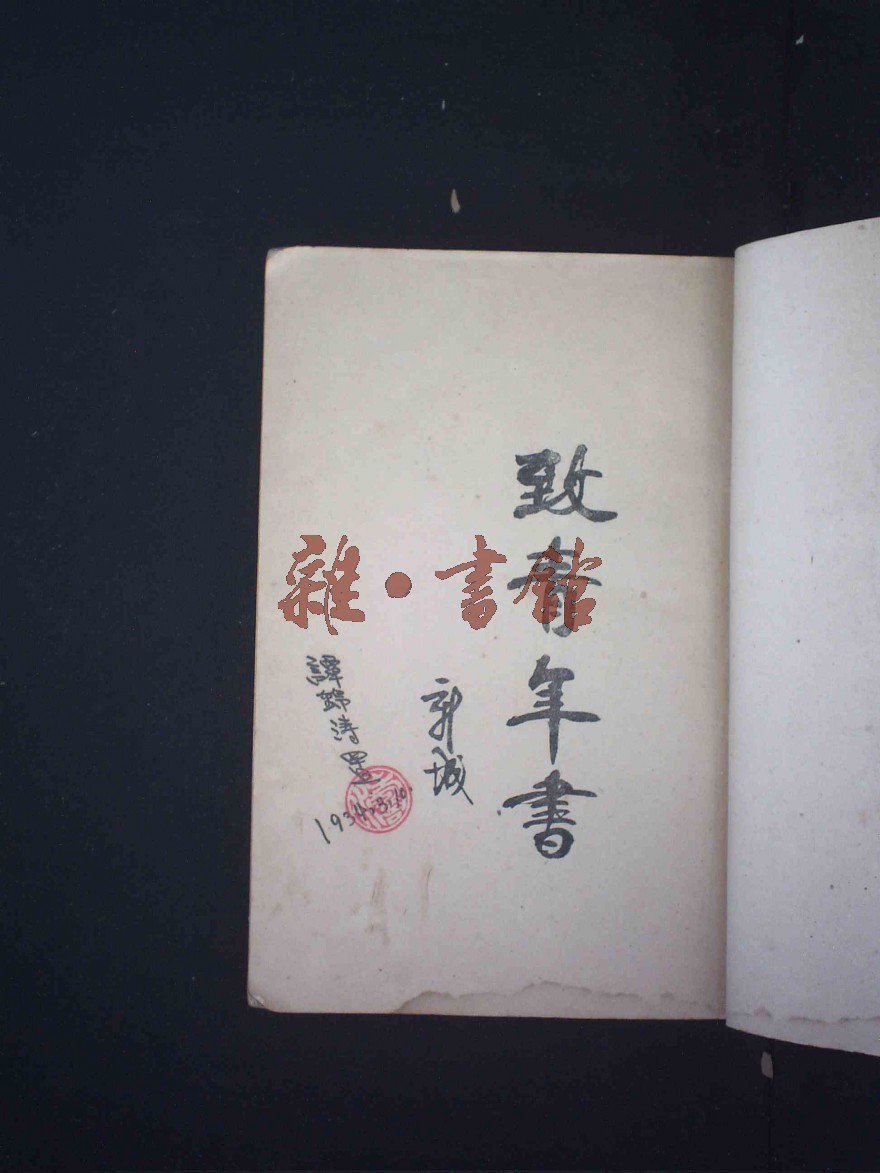 致青年書
郭城
譚錦濤置
1934.3.10.
雜·書館